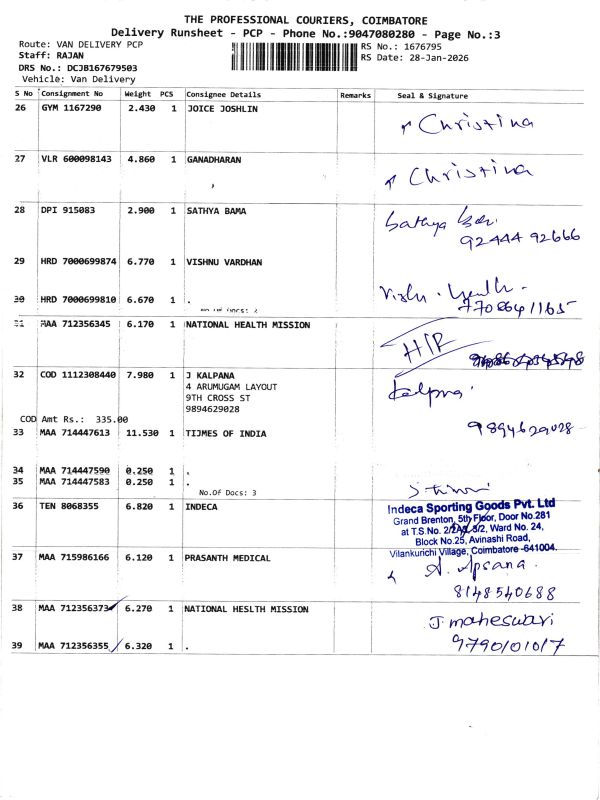 THE PROFESSIONAL COURIERS, COIMBATORE
Delivery Runsheet - PCP - Phone No.:9047080280 - Page No.:3
Route: VAN DELIVERY PCP
Staff: RAJAN
DRS No.: DCJB167679503
Vehicle: Van Delivery
RS No.: 1676795
RS Date: 28-Jan-2026
S No Consignment No Weight PCS Consignee Details Remarks Seal & Signature
26 GYM 1167290 2.430 1 JOICE JOSHLIN
Christina
27 VLR 600098143 4.860 1 GANADHARAN
Christina
28 DPI 915083 2.900 1 SATHYA BAMA
Sathya
92444 92666
29 HRD 7000699874 6.770 1 VISHNU VARDHAN
30 HRD 7000699810 6.670 1 .
No.Of Docs: 2
31 MAA 712356345 6.170 1 NATIONAL HEALTH MISSION
32 COD 1112308440 7.980 1 J KALPANA
4 ARUMUGAM LAYOUT
9TH CROSS ST
9894629028
Kalpna
COD Amt Rs.: 335.00
33 MAA 714447613 11.530 1 TIJMES OF INDIA
9894629028
34 MAA 714447590 0.250 1 .
35 MAA 714447583 0.250 1 .
No.Of Docs: 3
36 TEN 8068355 6.820 1 INDECA
Indeca Sporting Goods Pvt. Ltd
Grand Brenton, 5th Floor, Door No.281
at T.S.No. 2/2A1, 3/2, Ward No. 24,
Block No.25, Avinashi Road,
Vilankurichi Village, Coimbatore -641004.
37 MAA 715986166 6.120 1 PRASANTH MEDICAL
A. Apsana.
8148540688
38 MAA 712356373 6.270 1 NATIONAL HESLTH MISSION
J. maheswari
39 MAA 712356355 6.320 1 .
9790101017